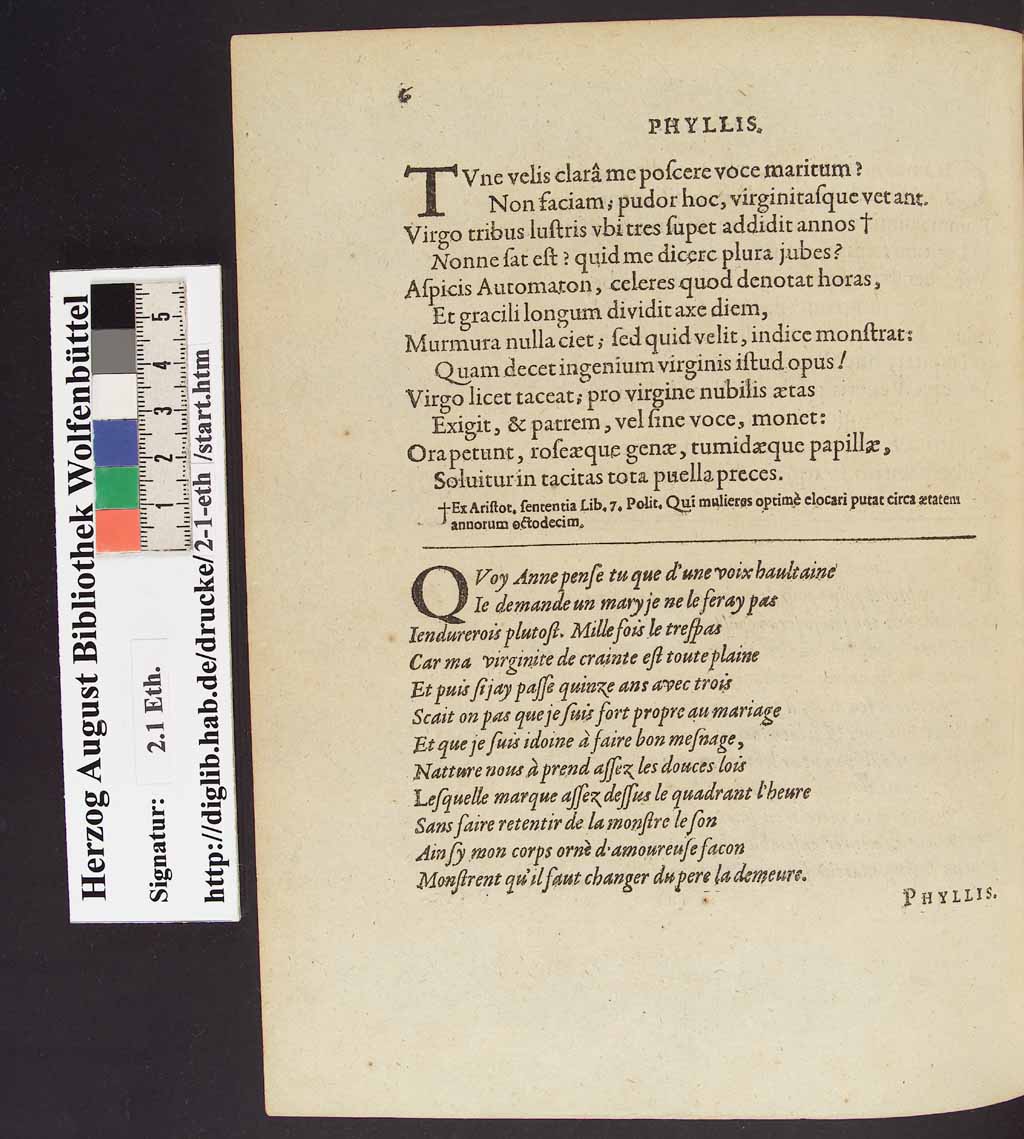 6
PHYLLIS.
TVne velis clarâ me poſcere voce maritum?
Non faciam; pudor hoc, virginitaſque vetant.
Virgo tribus luſtris vbi tres ſupet addidit annos †
Nonne ſat eſt? quid me dicere plura jubes?
Aſpicis Automaton, celeres quod denotat horas,
Et gracili longum dividit axe diem,
Murmura nulla ciet; ſed quid velit, indice monſtrat:
Quam decet ingenium virginis iſtud opus!
Virgo licet taceat; pro virgine nubilis ætas
Exigit, & patrem, vel ſine voce, monet:
Ora petunt, roſeæque genæ, tumidæque papillæ,
Soluitur in tacitas tota puella preces.
†Ex Ariſtot. ſententia Lib. 7. Polit. Qui mulieres optimè elocari putat circa ætatem
annorum octodecim.
QVoy Anne penſe tu que d'une voix haultaine
Ie demande un mary je ne le feray pas
Iendurerois plutoſt. Mille fois le treſpas
Car ma virginite de crainte eſt toute plaine
Et puis ſi jay paſſe quinze ans avec trois
Scait on pas que je ſuis fort propre au mariage
Et que je ſuis idoine à faire bon meſnage,
Natture nous à prend aſſez les douces lois
Leſquelle marque aſſez deſſus le quadrant l'heure
Sans faire retentir de la monſtre le ſon
Ainſy mon corps ornè d'amoureuſe facon
Monſtrent qu'il faut changer du pere la demeure.
PHYLLIS.
Herzog August Bibliothek Wolfenbüttel
Signatur: 2.1 Eth.
http://diglib.hab.de/drucke/2-1-eth/start.htm
1 2 3 4 5